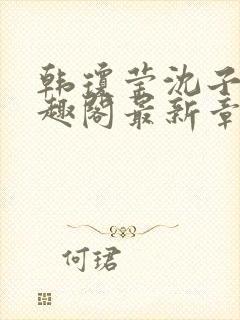 韩琼莹沈子
趣阁最新章
何珺